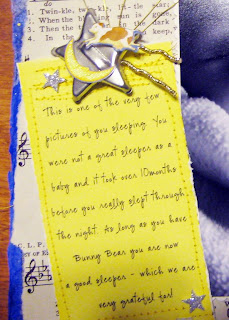 do
1. Twinkle, twinkle, lit- tle star;
2. When the blazing sun is gone,
3. Then the in the dark
4. In the you keep,
This is one of the very few
pictures of you sleeping. You
were not a great sleeper as a
baby and it took over 10months
before you really slept through
the night. As long as you have
Bunny Bear you are now
a good sleeper - which we are
very grateful for!
C. L. P.